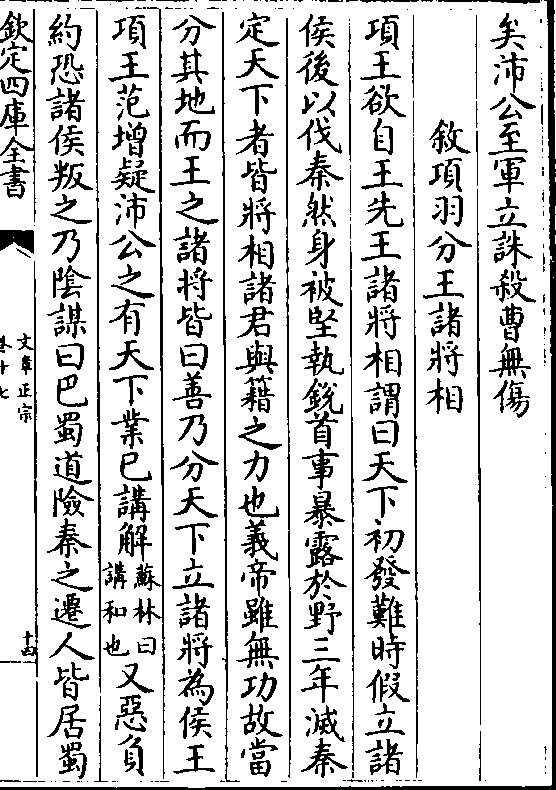 矣沛公至軍立誅殺曹無傷
敘項羽分王諸將相
項王欲自王先王諸將相謂曰天下初發難時假立諸
侯後以伐秦然身被堅執銳首事暴露於野三年滅秦
定天下者皆將相諸君與籍之力也義帝雖無功故當
分其地而王之諸將皆曰善乃分天下立諸將為侯王
項王范增疑沛公之有天下業已講解蘇林曰講和也又惡負
約恐諸侯叛之乃陰謀曰巴蜀道險秦之遷人皆居蜀
欽定四庫全書
文章正宗
卷十七
十四